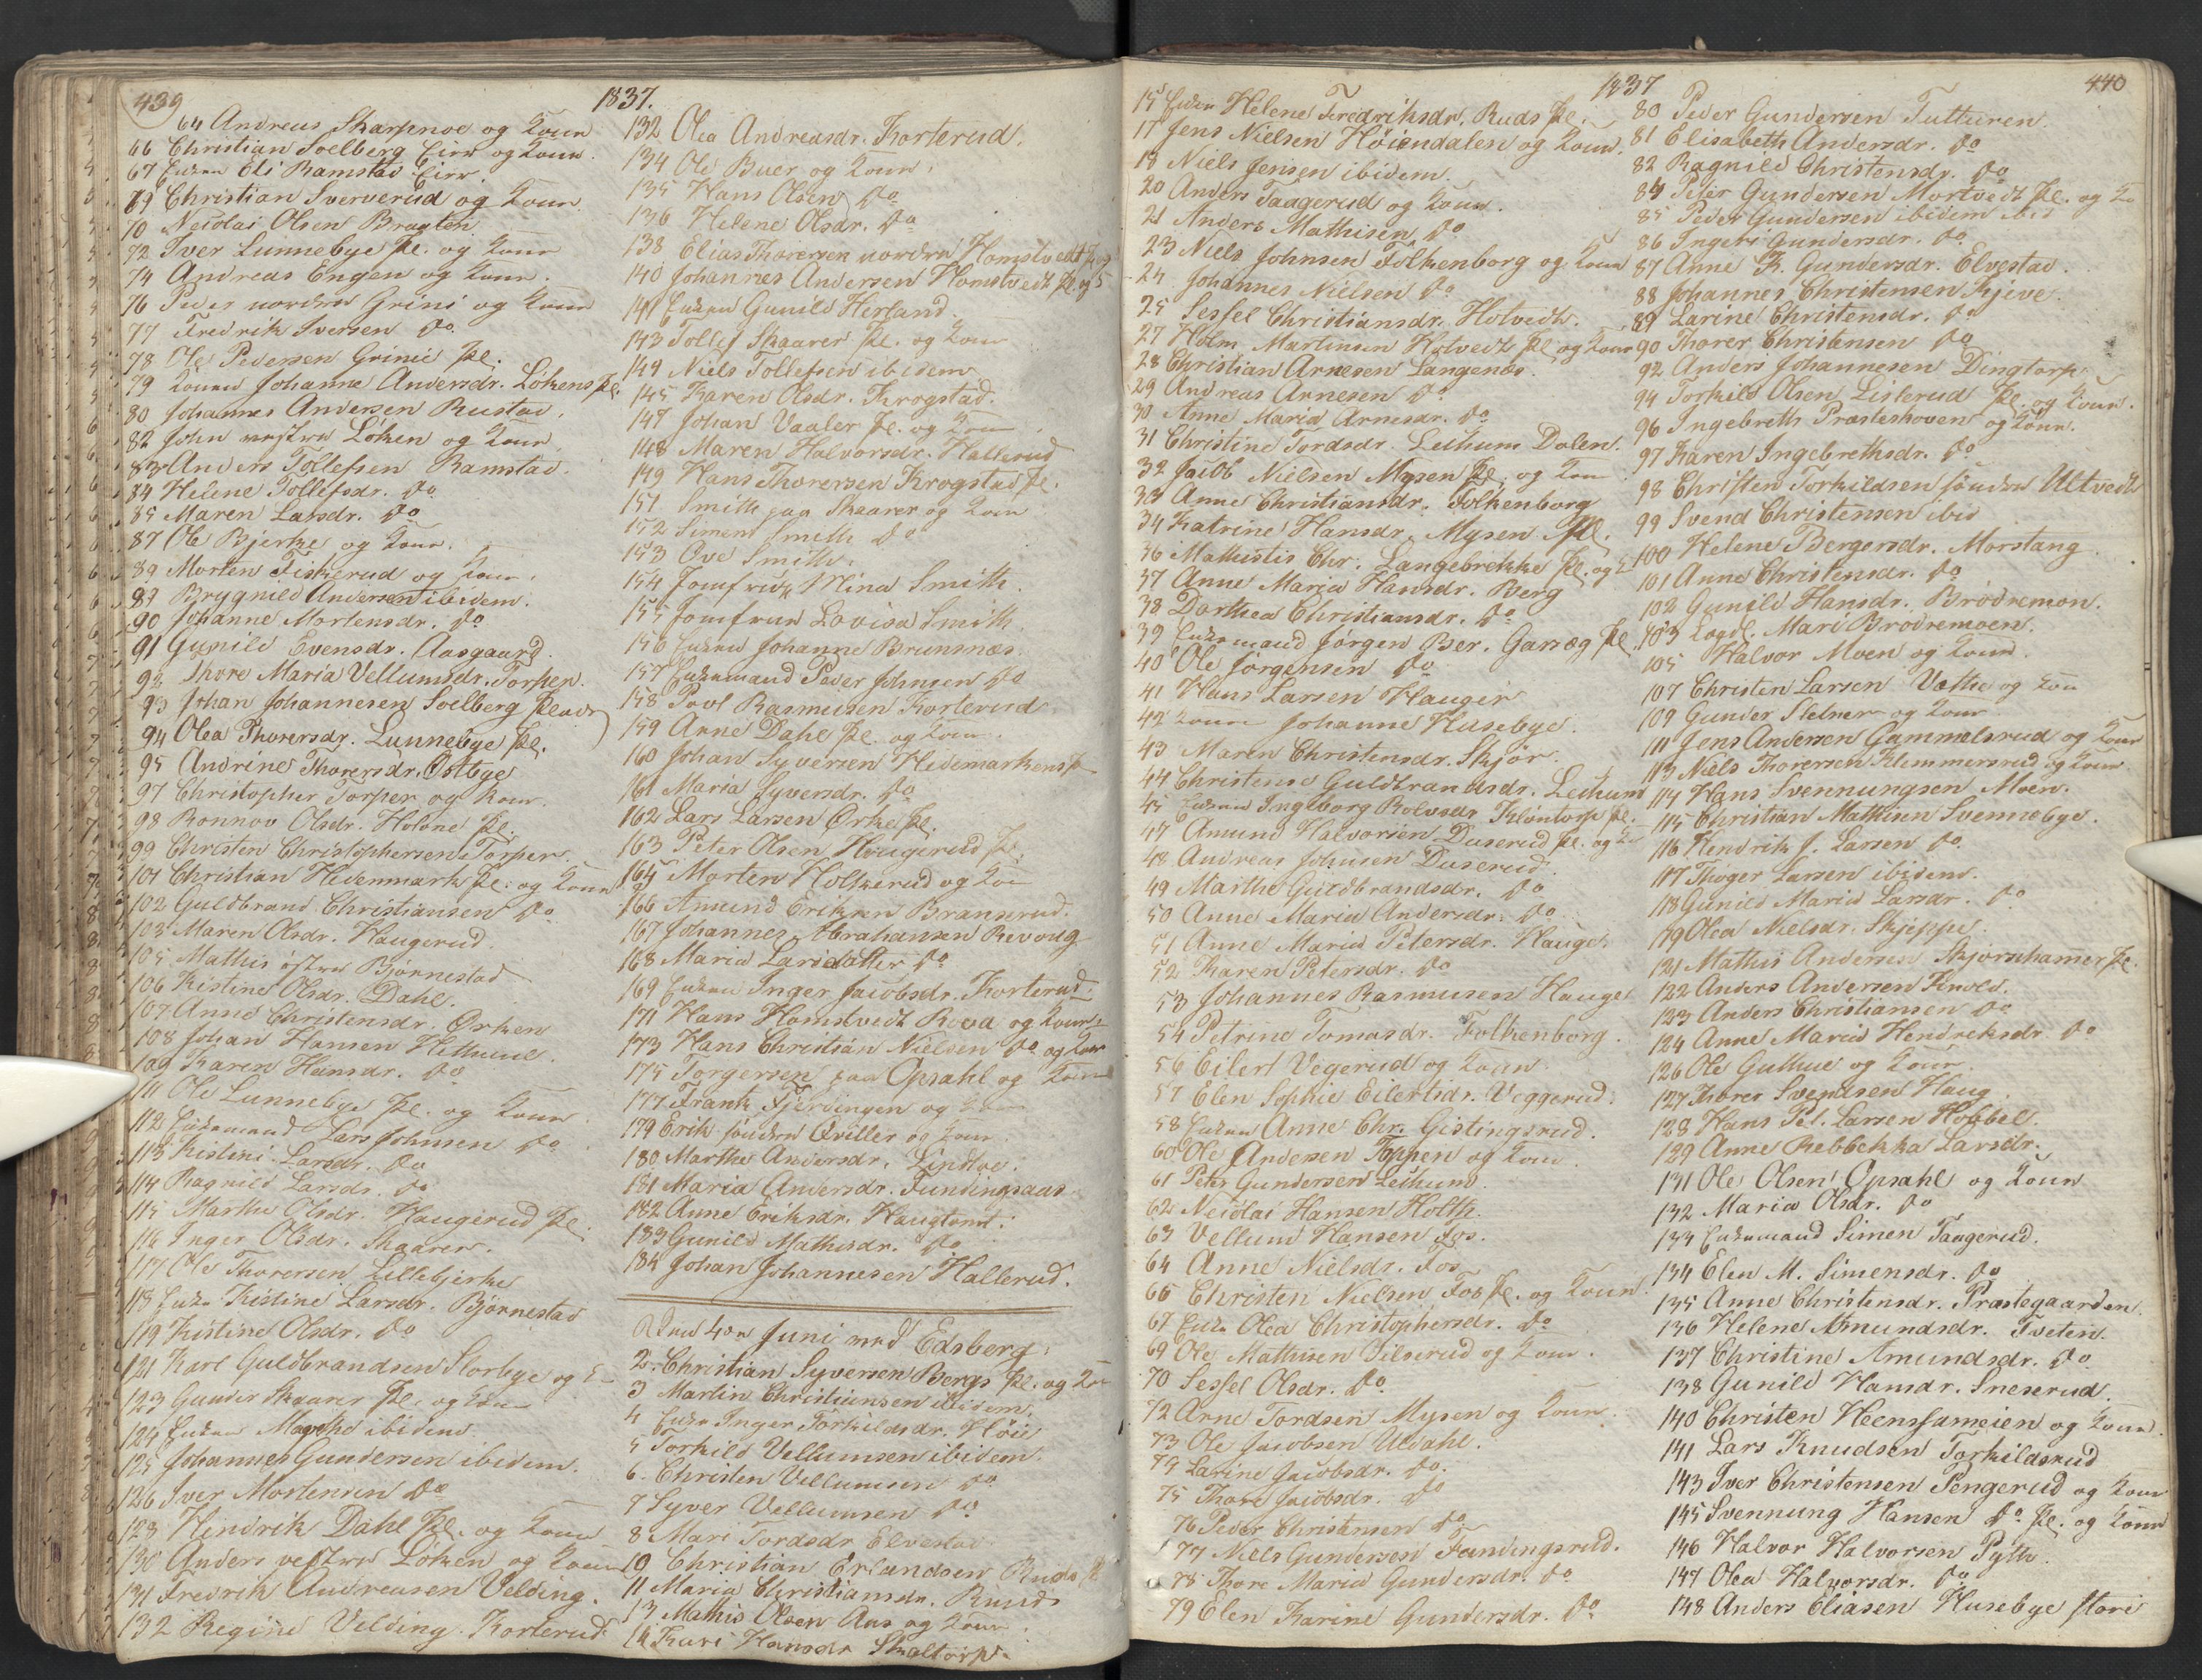 439
1837.
64 Andreas Skarpnoe og Kone
66 Christian Soelberg Eier og Kone.
67 Enken Eli Ramstad Eier.
69 Christian Sververud og Kone
70 Nicolai Olsen Bragten
72 Iver Lunnebye Pl. og Kone
74 Andreas Engen og Kone.
76 Peder nordre Grini og Kone
77 Fredrik Iversen do
78 Ole Pedersen Grinie Pl.
79 Konen Johanne Andersdr. Lökens Pl.
80 Johannes Andersen Rustad.
82 John vestre Löken og Kone
83 Anders Tollefsen Ramstad.
84 Helene Tollefsdr. do
85 Maren Larsdr. do
87 Ole Bjerke og Kone.
89 Morten Fiskerud og Kone.
89 Brygnild Andersen ibidem.
90 Johanne Mortensdr. do
91 Gunild Evensdr. Aasgaard.
92 Thore Maria Vellumsdr. Torper.
93 Johan Johannesen Soelberg
94 Olea Thorersdr. Lunnebye Pl.
95 Andrine Thorersdr. Östbye
97 Christopher Torper og Kone.
98 Ronnov Olsdr. Holene Pl.
99 Christen Christophersen Torper.
101 Christian Hedenmark Pl. og Kone
102 Guldbrand Christiansen do
103 Maren Olsdr. Haugerud.
105 Mathis östre Björnestad
106 Kistine Olsdr. Dahl.
107 Anne Christensdr. Örken
108 Johan Hansen Hethuul.
109 Karen Hansdr. do
111 Ole Lunnebye Pl. og Kone
112 Enkemand Lars Johnsen do
113 Kistine Larsdr. do
114 Ragnild Larsdr. do
115 Marthe Olsdr. Haugerud Pl.
116 Inger Olsdr. Skaarer.
117 Ole Thorersen Lillebjerke
118 Enke Kistine Larsdr. Björnestad
119 Kistine Olsdr. do
121 Karl Guldbrandsen Storbye og K
123 Gunder Skaarer Pl. og Kone
124 Enken Marthe ibidem
125 Johannes Gundersen ibidem.
126 Iver Mortensen do
128 Hindrik Dahl Pl. og Kone
130 Anders vestre Löken og Kone
131 Fredrik Andreasen Velding.
132 Regine Velding Korterud
132 Olea Andreasdr. Korterud.
134 Ole Buer og Kone.
135 Hans Olsen do
136 Helene Olsdr. do
138 Elias Thorersen nordre Homstvedt
140 Johannes Andersen Homstvedt Pl. og
141 Enken Gunild Herland.
143 Tollef Skaarer Pl. og Kone
144 Niels Tollefsen ibidem
145 Karen Olsdr. Krogstad.
147 Johan Vaaler Pl. og Kone
148 Maren Halvorsdr. Hallerud
149 Hans Thorersen Krogstad Pl.
151 Smith paa Skaarer og Kone
152 Simen Smith do
153 Ove Smith.
154 Jomfrue Mina Smith.
155 Jomfrue Lovisa Smith.
156 Enken Johanne Brunsnæs.
157 Enkemand Peder Johnsen do
158 Povl Rasmusen Korterud.
159 Anne Dahl Pl. og Kone.
160 Johan Syversen Hedemarkens
161 Maria Syversdr. do
162 Lars Larsen Örke Pl.
163 Peter Olsen Hougerud Pl.
165 Morten Holterud og Kone
166 Amund Eriksen Branserud.
167 Johannes Abrahamsen Revoug
168 Maria Larsdatter do
169 Enken Inger Jacobsdr. Korterud.
171 Hans Homstvedt Reva og Kone
173 Hans Christian Nielsen do og Kone
175 Torgersen paa Opsahl og Kone
177 Frank Fjerdingen og Kone
179 Erik söndre Qviller og Kone.
180 Marthe Andersdr. Lindtoe.
181 Maria Andersdr. Fundingsaas.
182 Anne Eriksdr. Haugtomt.
183 Gunild Mathisdr. do
184 Johan Johannesen Hallerud.
Den 4de Juni ved Edsberg.
2. Christian Syversen Bergs Pl. og Kone
3 Martin Christiansen ibidem.
4 Enke Inger Torkildsdr. Höie
5 Torkild Vellumsen ibidem.
6. Christen Vellumsen do
7 Syver Vellumsen do
8 Mari Tordsdr Elvestad.
10 Christian Erlandsen Ruds Pl
11 Maria Christiansdr. Ruud
13 Mathis Olsen Aas og Kone.
14 Kari Hansdr Skaltorp.
440
1837
15 Enke Helene Fredriksdr. Ruds Pl.
17 Jens Nielsen Höiendalen og Kone.
18 Niels Jensen ibidem.
20 Anders Taagerud og Kone.
21 Anders Mathisen do
23 Niels Johnsen Folkenborg og Kone
24 Johannes Nielsen do
25 Sessel Christiansdr. Holvedt.
27 Holm Martinsen Holvedt Pl. og Kone
28 Christian Arnesen Langenæs.
29 Andreas Arnesen do
30 Anne Maria Arnesdr. do
31 Christine Tordsdr. Leihum Dalen.
32 Jacob Nielsen Mysen Pl. og Kone
33 Anne Christiansdr. Folkenborg
34 Katrine Hansdr. Mysen Pl.
36 Mathistis Chr. Langebrekke Pl. og K
37 Anne Maria Hansdr. Berg
38 Dorthea Christiansdr. do
39 Enkemand Jörgen Ber. Garseg Pl.
40 Ole Jorgensen do
41 Hans Larsen Hauger
42 Konen Johanne Husebye.
43 Maren Christensdr. Skjör.
44 Christense Guldbrandsdr. Leihum
45 Enken Ingeborg Rolvsdr Klöntorp Pl.
47 Amund Halvorsen Duserud Pl. og K
48 Andreas Johnsen Duserud.
49 Marthe Guldbrandsdr. do
50 Anne Maria Andersdr. do
51 Anne Maria Petersdr. Hauge.
52 Karen Petersdr. do
53 Johannes Rasmusen Hauge
54 Petrine Tomasdr. Folkenborg.
56 Eilert Vegerud og Kone.
57 Elen Sophie Eilertsdr. Veggerud.
58 Enken Anne Chr. Gistingsrud.
60 Ole Andersen Toppen og Kone.
61 Peter Gundersen Leihum.
62 Neiolai Hansen Holth.
63 Vellum Hansen Fos.
64 Anne Nielsdr. Fos
66 Christen Nielsen Fos Pl. og Kone.
67 Enke Olea Christophersdr. do
69 Ole Mathisen Silserud og Kone.
70 Sessel Olsdr. do
72 Arne Tordsen Mysen og Kone.
73 Ole Jacobsen Uldahl.
74 Larine Jacobsdr. do.
75 Thore Jacobsdr. do
76 Peder Christensen do
77 Niels Gundersen Fundingsrud.
78 Thore Maria Gundersdr. do
79 Elen Karine Gundersdr. do
80 Peder Gundersen Tutturen.
81 Elisabeth Andersdr. do
82 Ragnild Christensdr. do
84 Peder Gundersen Mortvedt Pl. og K
85 Peder Gundersen ibidem
86 Ingeri Gundersdr. do
87 Anne K. Gundersdr. Elvestad.
88 Johannes Christensen Kjeve.
89 Larine Christensdr. do
90 Thorer Christensen do
92 Anders Johannesen Dingtorp
94 Torkild Olsen Lislerud Pl. og Kone.
96 Ingebreth Præsteshoven og Kone.
97 Karen Ingebrethsdr. do
98 Christen Torkildsen söndre Ultvedt
99 Svend Christensen ibid
100 Helene Bergersdr. Morstang.
101 Anne Christensdr. do
102 Gunild Hansdr. Brödremon.
103 Logd. Mari Brödremoen.
105 Halvor Moen og Kone.
107 Christen Larsen Vethe og Kone
109 Gunder Slelner og Kone
111 Jens Andersen Gammelsrud og Kone
113 Niels Thorersen Klemmersrud og Kone.
114 Hans Svennungsen Moen.
115 Christian Mathisen Svennebye.
116 Hendrik J. Larsen do.
117 Thoger Larsen ibidem.
118 Gunild Maria Larsdr. do
119 Olea Nielsdr. Skjeppe.
121 Mathis Andersen Skjorshamer Pl.
122 Anders Andersen Finold.
123 Anders Christiansen do
124 Anne Maria Hendriksdr. do
126 Ole Guthue og Kone.
127 Thorer Svendsen Haug.
128 Hans Pet. Larsen Hobbel.
129 Anne Rebbekka Larsdr.
131 Ole Olsen Opsahl og Kone
132 Maria Olsdr. do
133 Enkemand Simen Taagerud.
134 Elen M. Simensdr. do
135 Anne Christensdr. Præstegaarden.
136 Helene Amundsdr. Tveten.
137 Christine Amundsdr. do
138 Gunild Hansdr. Sneserud.
140 Christen Heenssameien og Kone.
141 Lars Knudsen Torkildsrud
143 Iver Christensen Sengerud og Kone
145 Svennung Hansen do. Pl. og Kone
146 Halvor Halvorsen Pyth.
147 Olea Halvorsdr. do
148 Anders Eliasen Husebye store